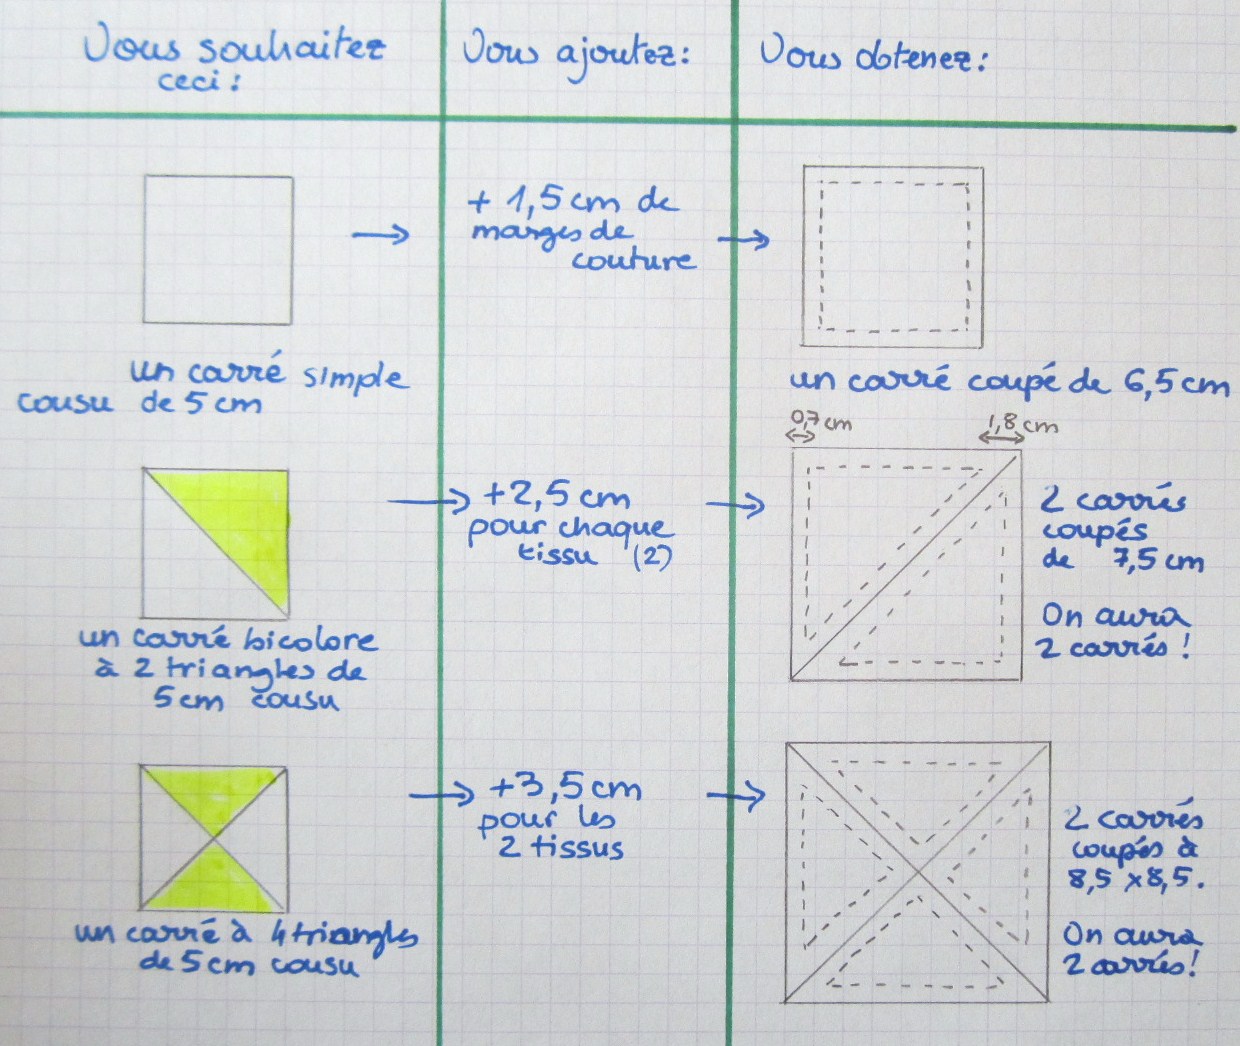 Vous souhaitez
ceci :
Vous ajoutez :
Vous obtenez :
+ 1,5 cm de
marges de
couture
un carré simple
cousu de 5 cm
un carré coupé de 6,5 cm
0,7 cm
1,8 cm
+2,5 cm
pour chaque
tissu (2)
2 carrés
coupés
de 7,5 cm
On aura
2 carrés !
un carré bicolore
à 2 triangles de
5 cm cousu
+3,5 cm
pour les
2 tissus
2 carrés
coupés à
8,5 x 8,5.
On aura
2 carrés !
un carré à 4 triangles
de 5 cm cousu